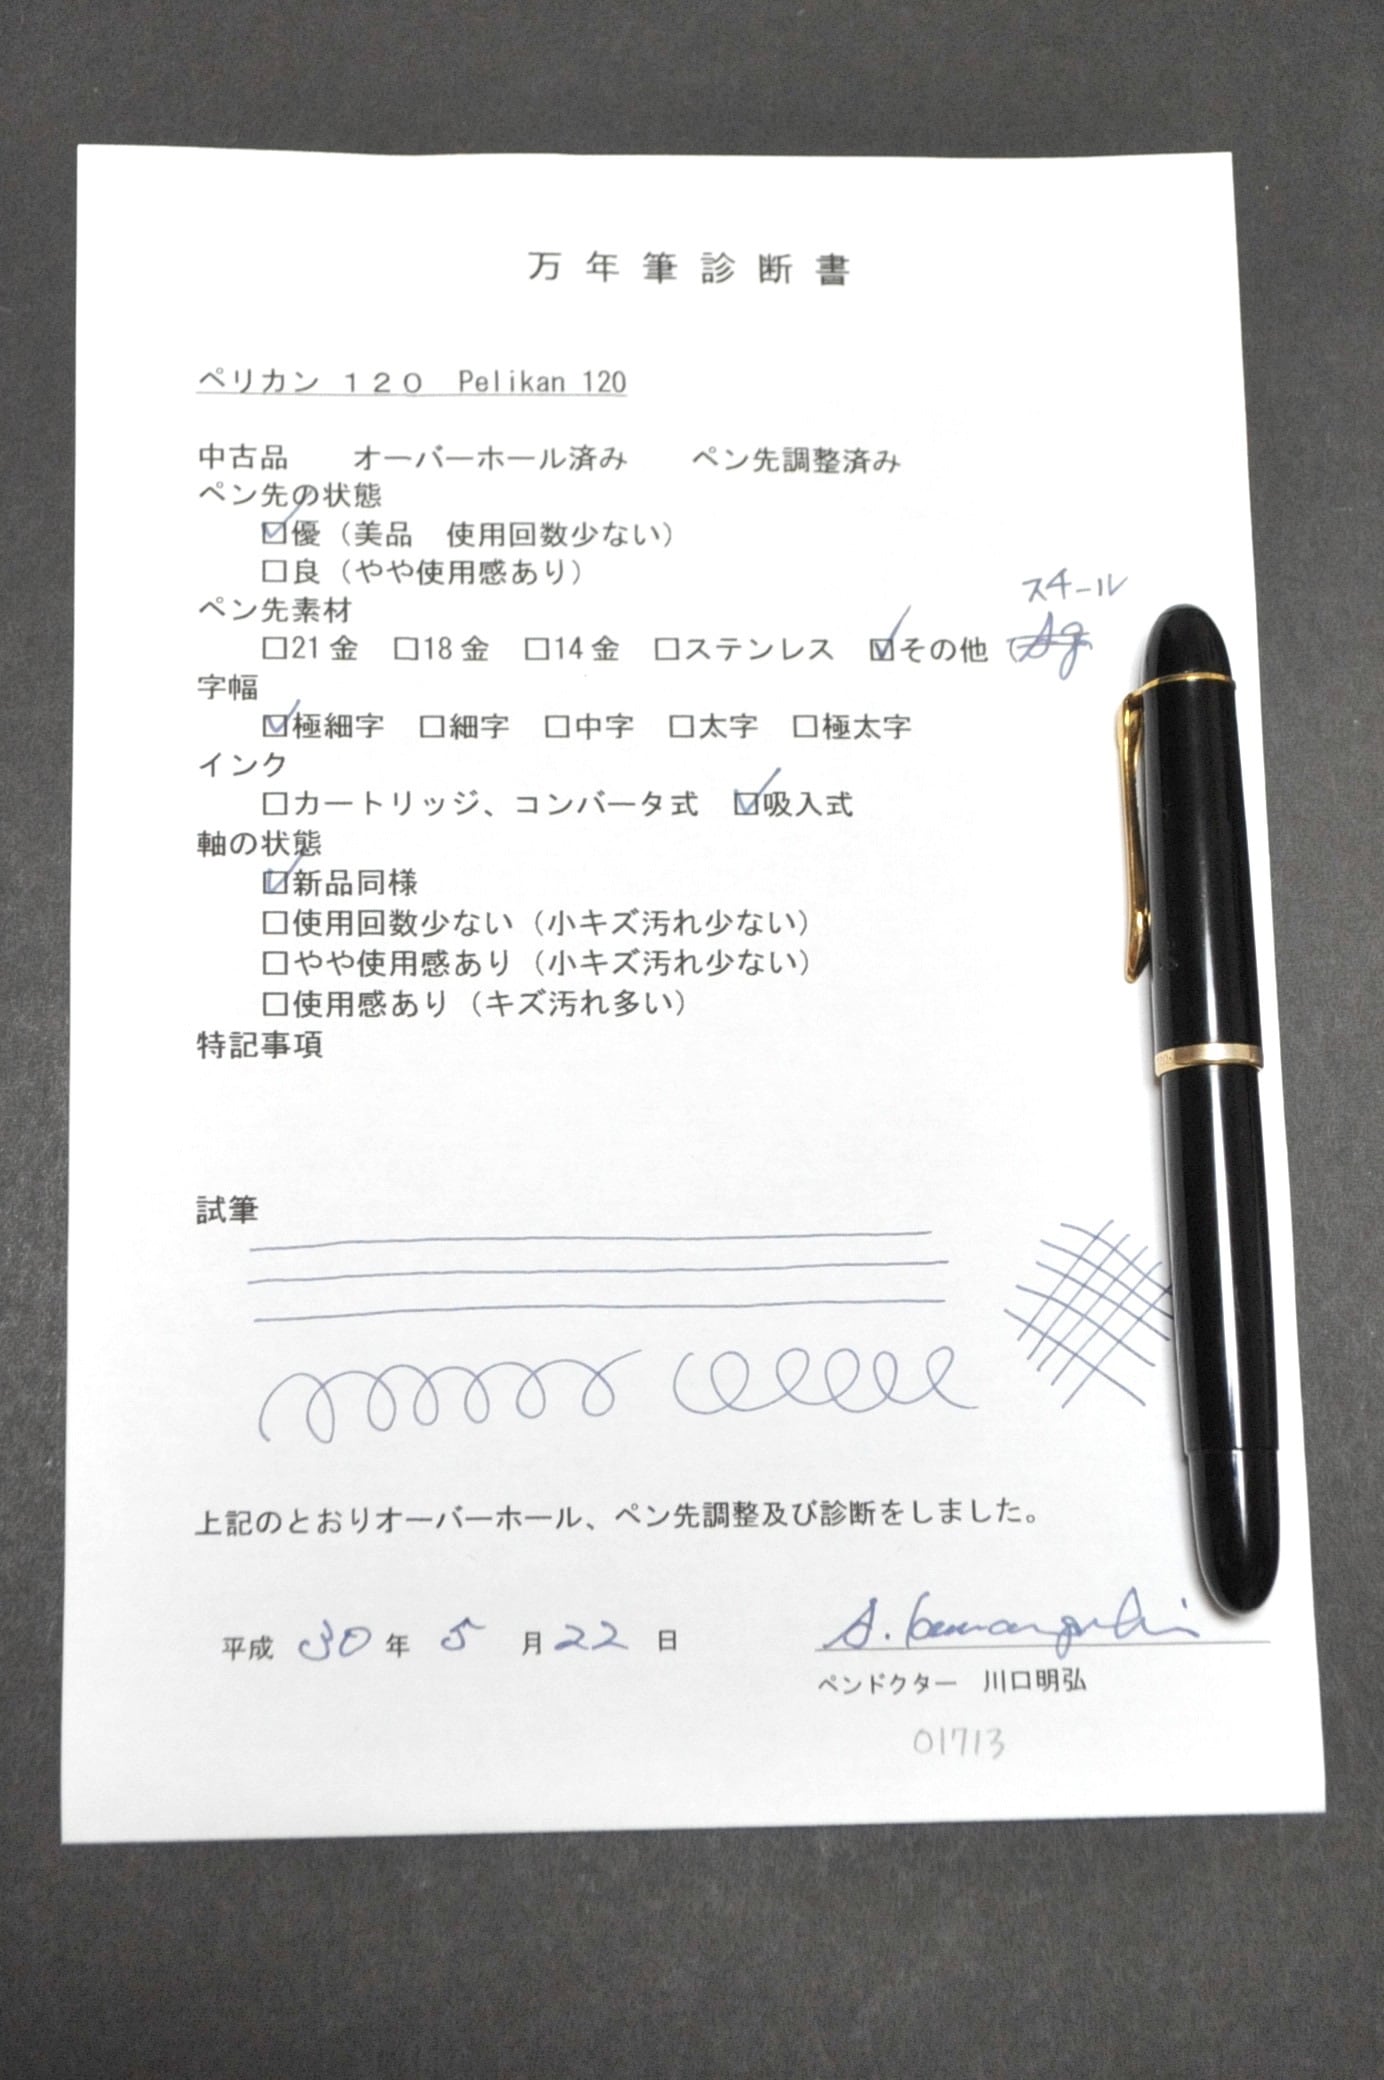 万年筆診断書
ペリカン １２０　Pelikan 120
中古品　　オーバーホール済み　　ペン先調整済み
ペン先の状態
☑優（美品　使用回数少ない）
□良（やや使用感あり）
スチール
ペン先素材
□21金　□18金　□14金　□ステンレス　☑その他（
字幅
☑極細字　□細字　□中字　□太字　□極太字
インク
□カートリッジ、コンバータ式　☑吸入式
軸の状態
☑新品同様
□使用回数少ない（小キズ汚れ少ない）
□やや使用感あり（小キズ汚れ少ない）
□使用感あり（キズ汚れ多い）
特記事項
試筆
上記のとおりオーバーホール、ペン先調整及び診断をしました。
平成 30 年 5 月 22 日
ペンドクター　川口明弘
01713